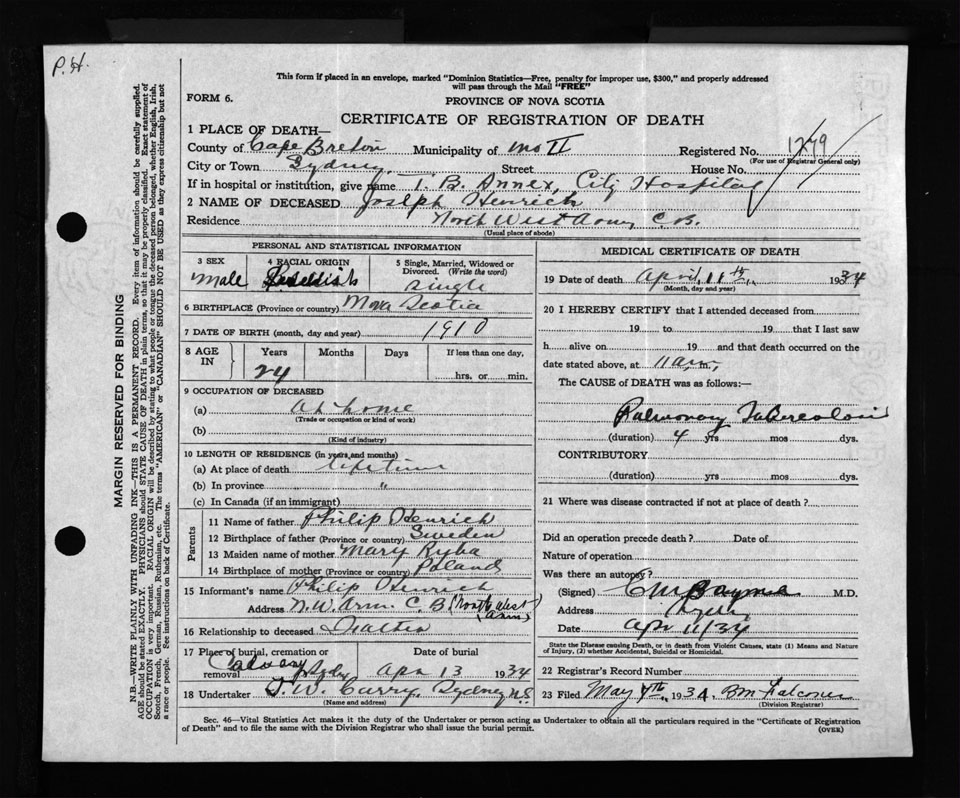 P.H.
This form if placed in an envelope, marked "Dominion Statistics—Free, penalty for improper use, $300," and properly addressed
will pass through the Mail "FREE"
FORM 6.
PROVINCE OF NOVA SCOTIA
CERTIFICATE OF REGISTRATION OF DEATH
1 PLACE OF DEATH—
County of Cape Breton Municipality of No II Registered No. 1279
(For use of Registrar General only)
City or Town Sydney Street House No.
If in hospital or institution, give name T. B. Annex, City Hospital
2 NAME OF DECEASED Joseph Henrich
Residence North West Arm, C.B.
(Usual place of abode)
PERSONAL AND STATISTICAL INFORMATION
3 SEX Male
4 RACIAL ORIGIN
5 Single, Married, Widowed or Divorced. (Write the word) Single
6 BIRTHPLACE (Province or country) Nova Scotia
7 DATE OF BIRTH (month, day and year) 1910
8 AGE IN Years 24 Months Days If less than one day, hrs. or min.
9 OCCUPATION OF DECEASED
(a) at home
(Trade or occupation or kind of work)
(b)
(Kind of industry)
10 LENGTH OF RESIDENCE (in years and months)
(a) At place of death lifetime
(b) In province "
(c) In Canada (if an immigrant)
Parents
11 Name of father Philip Henrich
12 Birthplace of father (Province or country) Sweden
13 Maiden name of mother Mary Ryba
14 Birthplace of mother (Province or country) Poland
15 Informant's name Philip Henrich
Address N.W. Arm C.B. (North West Arm)
16 Relationship to deceased Father
17 Place of burial, cremation or removal Calvary Sydney Date of burial Apr 13 1934
18 Undertaker T. W. Curry, Sydney N.S.
(Name and address)
MEDICAL CERTIFICATE OF DEATH
19 Date of death April, 11th, 1934
(Month, day and year)
20 I HEREBY CERTIFY that I attended deceased from
19 to 19 that I last saw
h alive on 19 and that death occurred on the
date stated above, at 11 a.m.,
The CAUSE of DEATH was as follows:—
Pulmonary Tuberculosis
(duration) 4 yrs mos dys.
CONTRIBUTORY
(duration) yrs mos dys.
21 Where was disease contracted if not at place of death?
Did an operation precede death? Date of
Nature of operation
Was there an autopsy?
(Signed) M.D.
Address Sydney
Date Apr 11/34
State the Disease causing Death, or in death from Violent Causes, state (1) Means and
Nature of Injury, (2) whether Accidental, Suicidal or Homicidal.
22 Registrar's Record Number
23 Filed May 7th, 1934. Falconer
(Division Registrar)
Sec. 46—Vital Statistics Act makes it the duty of the Undertaker or person acting as Undertaker to obtain all the particulars required in the "Certificate of Registration
of Death" and to file the same with the Division Registrar who shall issue the burial permit.
(OVER)
MARGIN RESERVED FOR BINDING
N.B.—WRITE PLAINLY WITH UNFADING INK—THIS IS A PERMANENT RECORD. Every item of information should be carefully supplied.
AGE should be stated EXACTLY. PHYSICIANS should STATE CAUSE OF DEATH in plain terms, so that it may be properly classified. Exact statement of
OCCUPATION is very important. RACIAL ORIGIN will be described by stating to what people or tongue the deceased person belonged, whether English, Irish,
Scotch, French, German, Russian, Ruthenian, etc. The terms "AMERICAN" or "CANADIAN" SHOULD NOT BE USED as they express citizenship but not
a race or people. See instructions on back of Certificate.